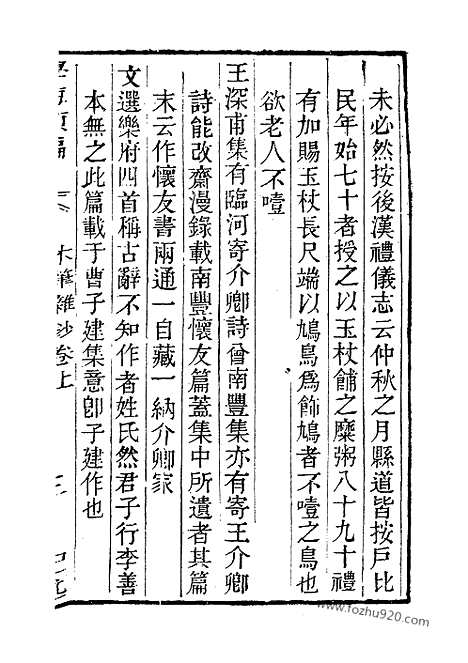 未必然按後漢禮儀志云仲秋之月縣道皆按戸比
民年始七十者授之以玉杖餔之糜粥八十九十禮
有加賜玉杖長尺端以鳩鳥爲飾鳩者不噎之鳥也
欲老人不噎
王深甫集有臨河寄介卿詩曾南豐集亦有寄王介卿
詩能改齋漫錄載南豐懷友篇蓋集中所遺者其篇
末云作懷友書兩通一自藏一納介卿家
文選樂府四首稱古辭不知作者姓氏然君子行李善
本無之此篇載于曹子建集意卽子建作也
木筆雜鈔卷上
三
www.fozhu920.com